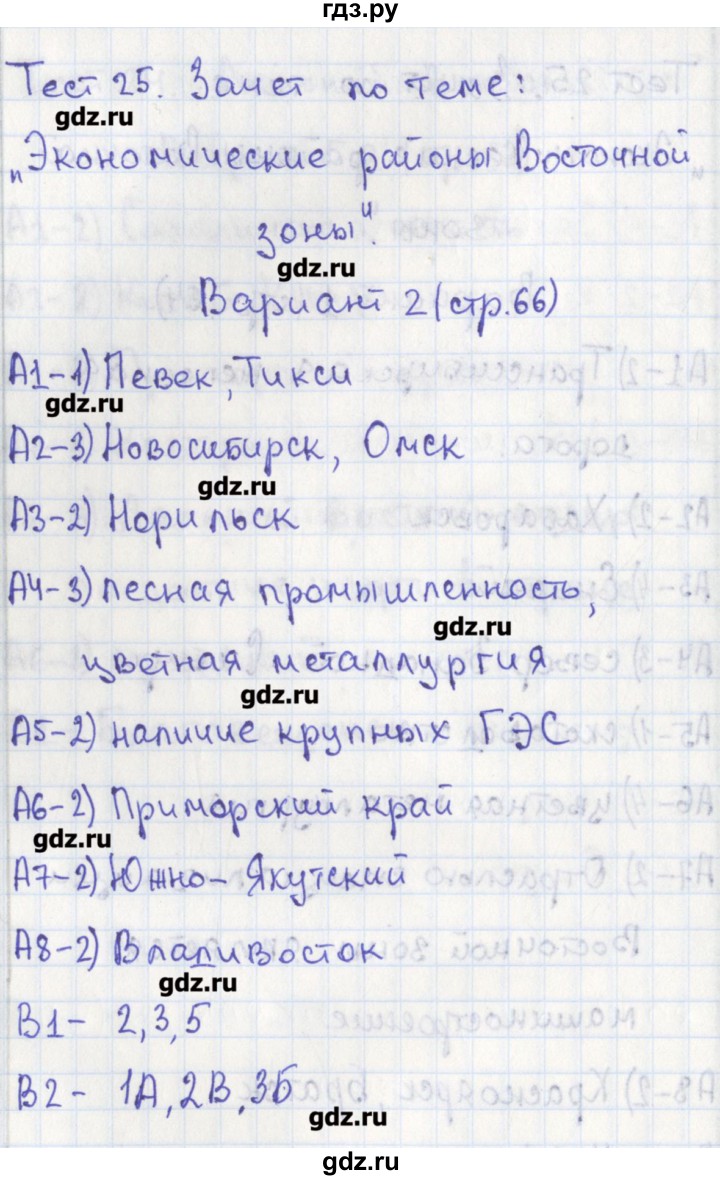 гдз.ру
Тест 25. Зачет по теме:
gdz.ru
„Экономические районы Восточной
зоны".
gdz.ru
Вариант 2 (стр.66)
А1-1) Певек, Тикси
gdz.ru
А2-3) Новосибирск, Омск
gdz.ru
А3-2) Норильск
А4-3) лесная промышленность,
gdz.ru
цветная металлургия
gdz.ru
А5-2) наличие крупных ГЭС
А6-2) Приморский край
gdz.ru
А7-2) Южно-Якутский
А8-2) Владивосток
gdz.ru
В1- 2,3,5
В2- 1А, 2В, 3Б
gdz.ru
gdz.ru